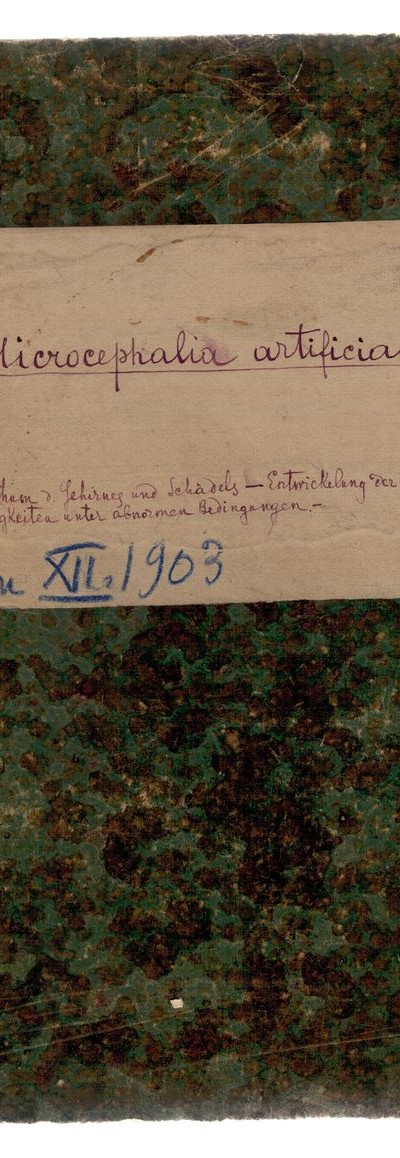 Microcephalia artificial
thum d. Gehirnes und Schädels — Entwickelung der
gkeiten unter abnormen Bedingungen.—
XII. 1903